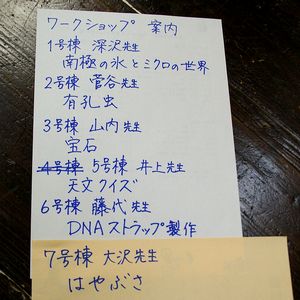 ワークショップ 案内
1号棟 深沢先生
南極の氷とミクロの世界
2号棟 菅谷先生
有孔虫
3号棟 山内先生
宝石
4号棟 5号棟 井上先生
天文クイズ
6号棟 藤代先生
DNAストラップ製作
7号棟 大沢先生
はやぶさ